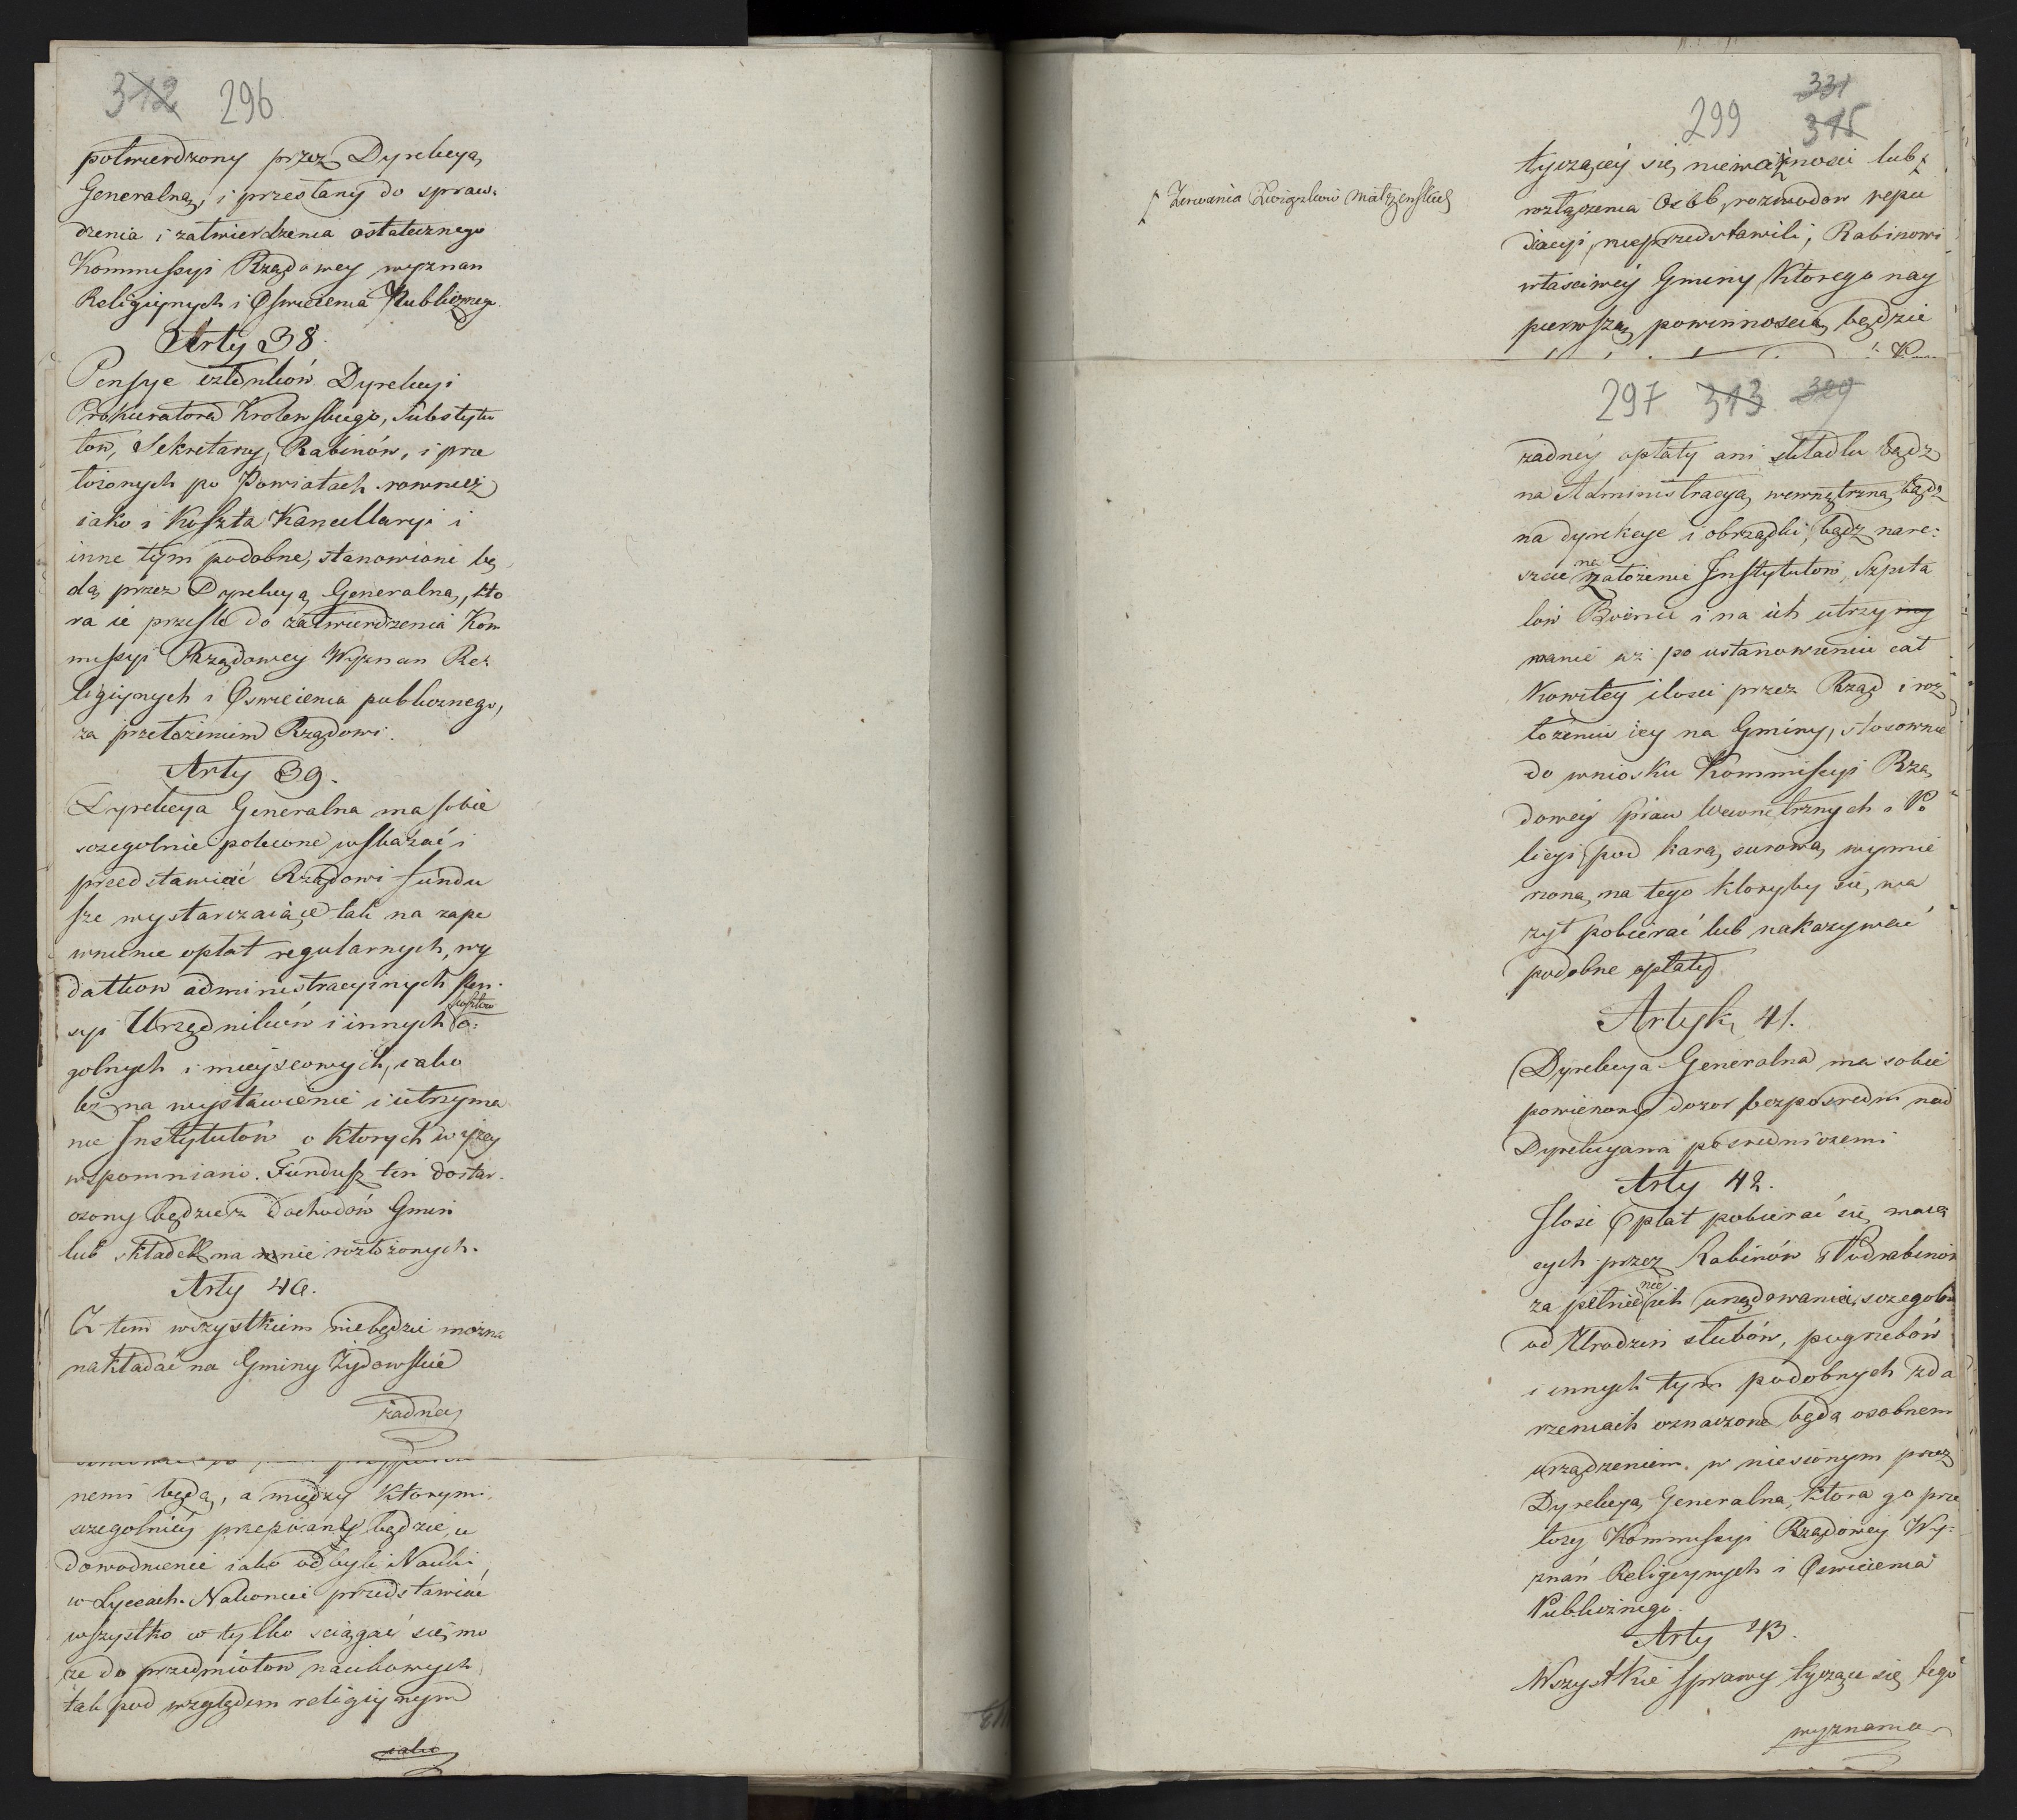 312 296
potwierdzony przez Dyrekcyą
Generalną, i przesłany do spraw-
dzenia i zatwierdzenia ostatecznego
Kommissyi Rządowey wyznan
Religiynych i Oswiecenia Publicznego.
Arty 38.
Pensye członków Dyrekcyi
Prokuratora Krolewskiego, Substytu
tow, Sekretarzy, Rabinów, i prze
łożonych po Powiatach rownież
iako i Koszta Kancellaryi i
inne tym podobne, stanowione bę
dą przez Dyrekcyą Generalną, kto
ra ie przesle do zatwierdzenia Kom
missyi Rządowey Wyznan Re-
ligiynych i Oswiecenia publicznego,
za przełożeniem Rządowi.
Arty 39.
Dyrekcya Generalna ma sobie
szczegolnie polecone wskazać i
przedstawiać Rządowi fundu
sze wystarczaiące tak na zape
wnienie opłat regularnych, wy
datkow administracyinych pen-
syi Urzędników i innych kosztow o-
golnych i mieyscowych, iako
też na wystawienie i utrzyma
nie Instytutów o ktorych wyżey
wspomniano. Fundusz ten dostar-
czony będzie z dochodów Gmin
lub składek na nie rozłożonych.
Arty 40.
Z tem wszystkiem niebędzie można
nakładać na Gminy Żydowskie
żadney
nemi będą, a między ktorymi
szczegolniey przepisany będzie, u
dowodnienie iako odbyli Nauki
w Lyceach. Nakoniec przedstawiać
wszystko co tylko sciągać się mo
że do przedmiotow naukowych
tak pod względem religiynym
iako
299 331
315
tyczącey się, nieważnosci lub
Zerwania Związkow małżenskich
rozłączenia Osób, rozwodow repu
diacyi, nieprzedstawili, Rabinowi
własciwey Gminy Ktorego nay
pierwszą powinnoscią będzie
297 313 329
żadney opłaty ani składku bądz
na Administracyą wewnętrzną bądz
na dyrekcye i obrządki, bądz nare-
szcie na założenie Instytutow, Szpita
low Bożnic i na ich utrzy my
manie aż po ustanowieniu cał
kowitey ilosci przez Rząd i roz
łożeniu iey na Gminy, stosownie
do wniosku Kommissyi Rzą
dowey spraw wewnętrznych i Po
licyi, pod karą surową wymie
rzoną na tego ktoryby się, wa
żył pobierać lub nakazywać
podobne opłaty
Artyk, 41.
Dyrekcya Generalna ma sobie
powierzony dozor bezposredni nad
Dyrekcyami posredniczemi
Arty 42.
Ilosc Opłat pobierać się maią
cych przez Rabinów i Podrabinow
za pełnienie ich urzędowania, szczegolnie
od Urodzin slubów, pogrzebów
i innych tym podobnych zda
rzeniach oznaczone będą osobnem
urządzeniem, w niesionym przez
Dyrekcyą Generalną, ktora go prze
łoży Kommissyi Rządowey Wy-
znań Religiynych i Oswiecenia
Publicznego.
Arty 43.
Wszystkie sprawy tyczące się tego
wyznania